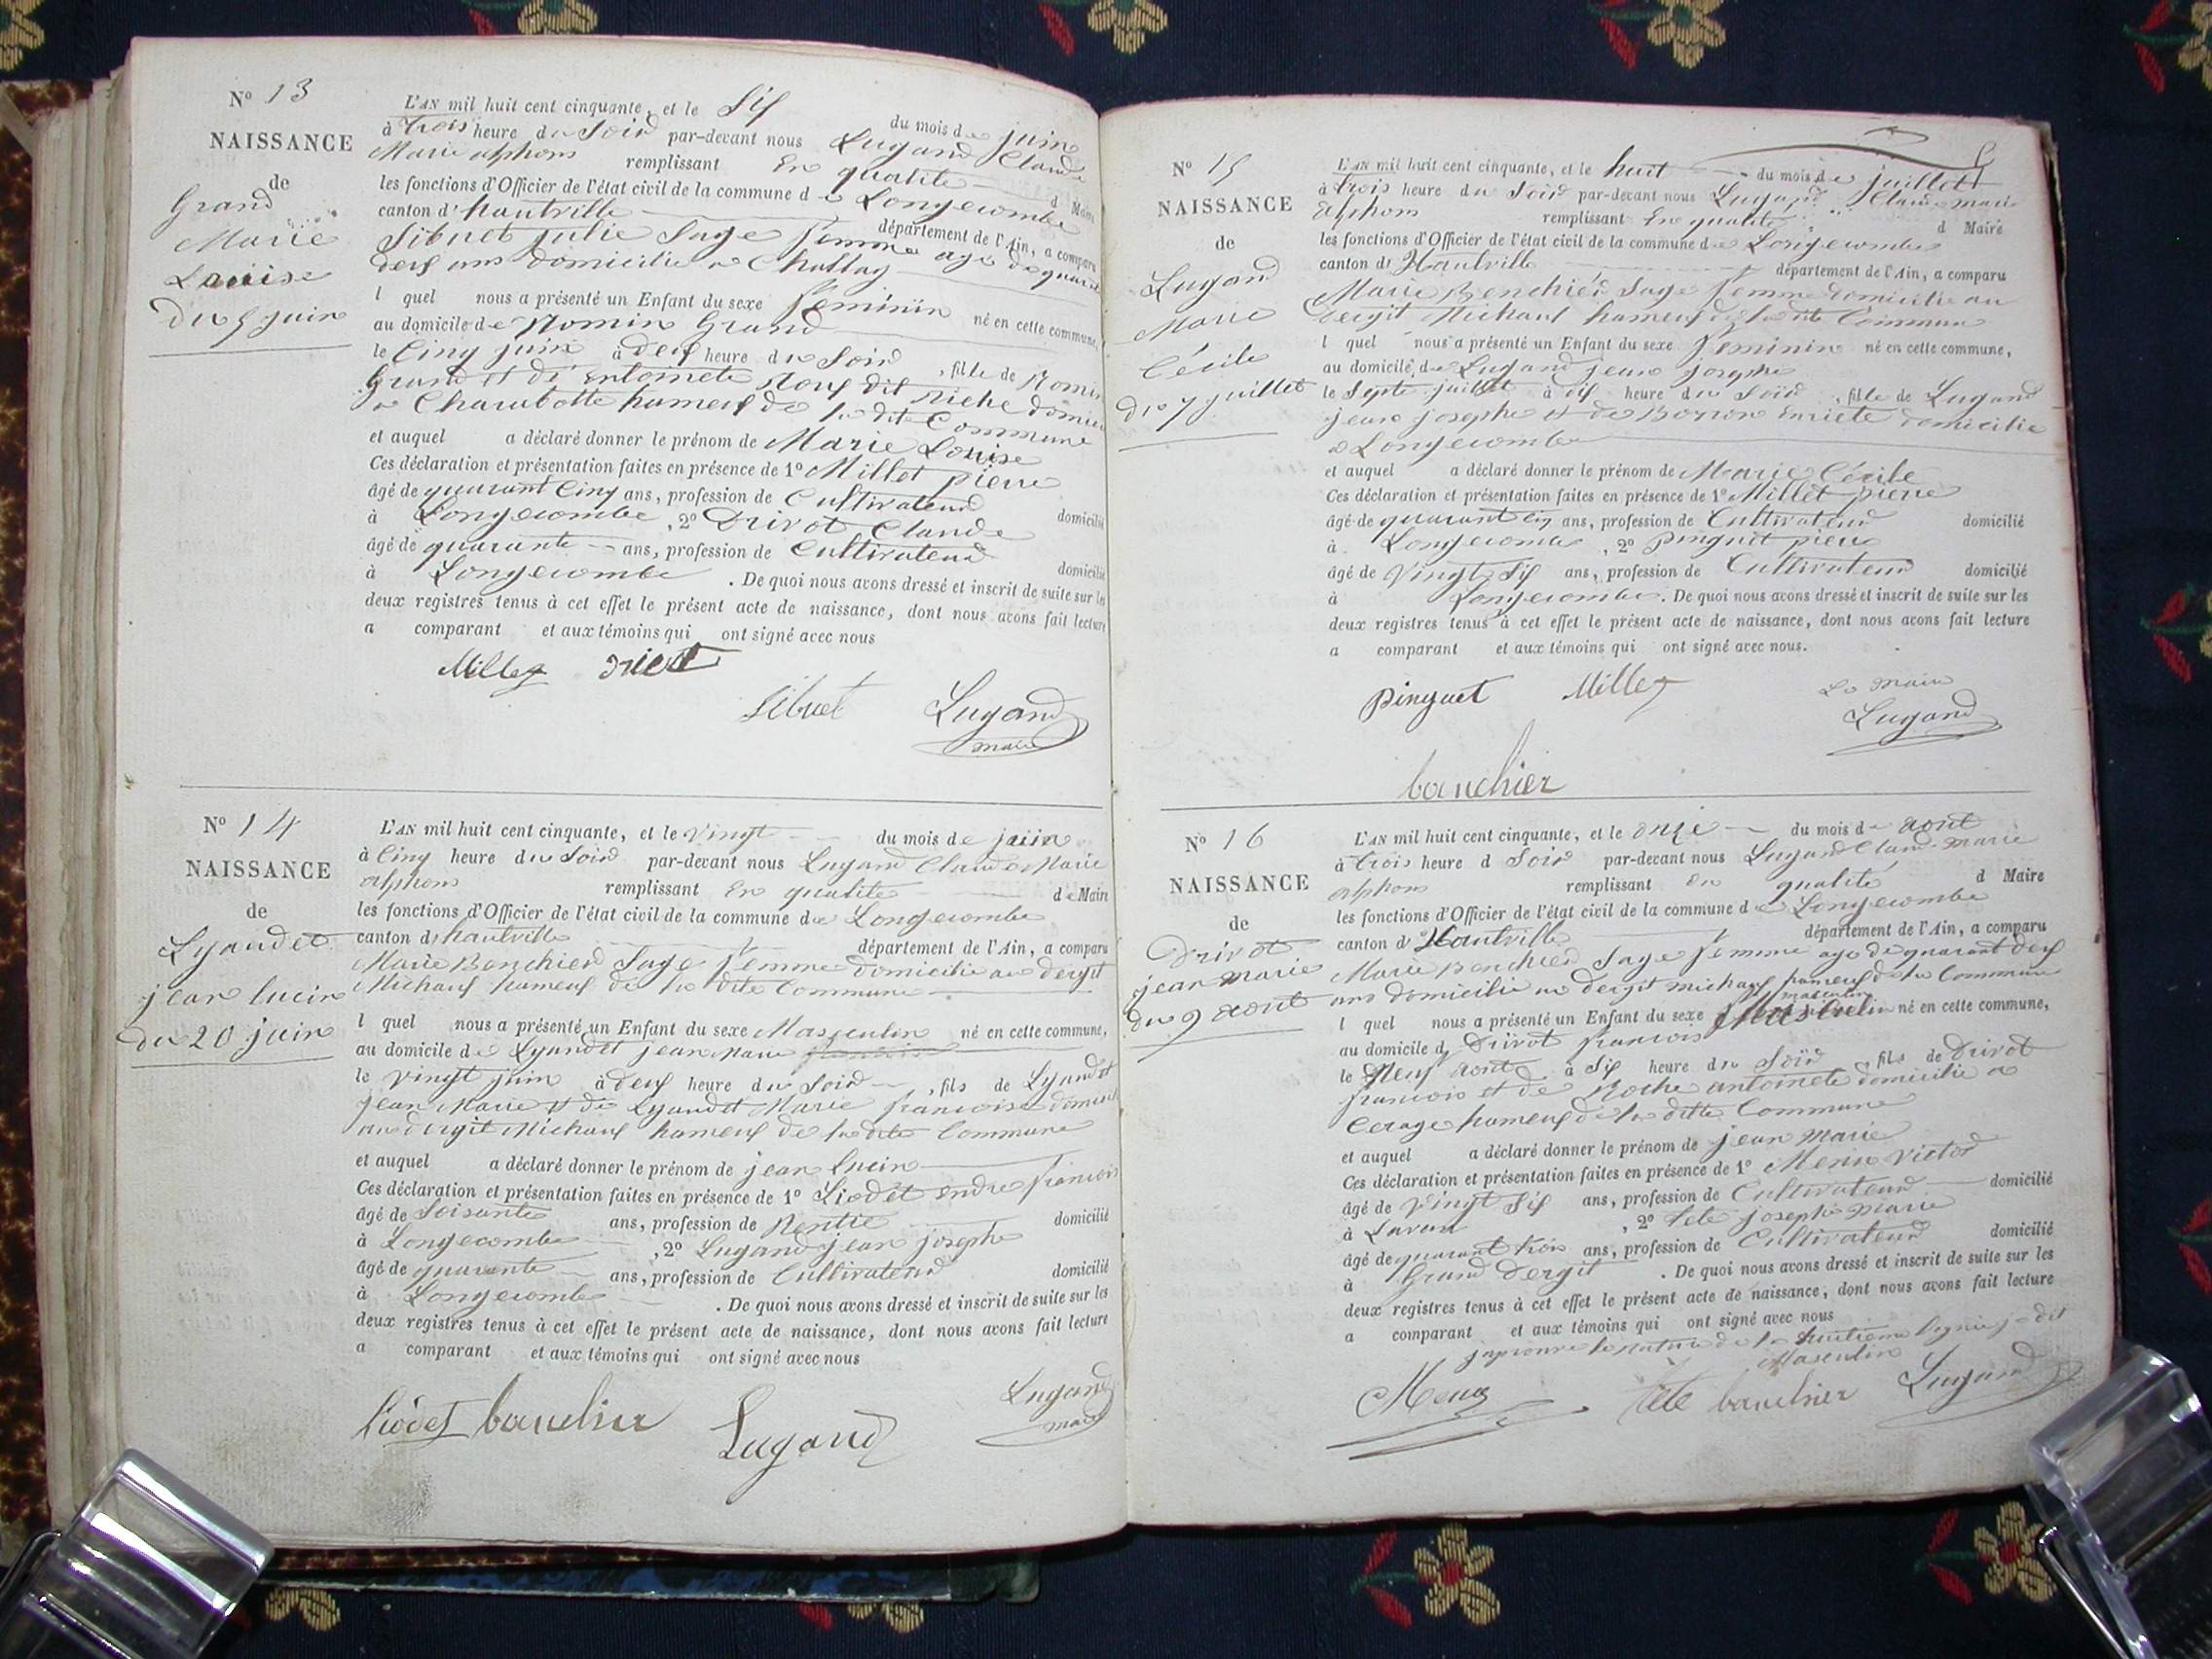 N° 13
NAISSANCE
de
Grand
Marie
Louise
du 5 juin
L'AN mil huit cent cinquante, et le Sif du mois de juin
à trois heure du Soir par-devant nous Lugand Claude
Marie alphons remplissant En qualité d Maire
les fonctions d'Officier de l'état civil de la commune de Longecombe
canton d'hautville département de l'Ain, a comparu
Sibuet julie Sage femme agé de quarante
deus ans domicilie a Challay
l quel nous a présenté un Enfant du sexe feminin né en cette commune,
au domicile de Romin Grand
le Cinq juin à deus heure du Soir, fille de Romin
Grand et di Entoinete Rouf dit Riche domici
a Charabotte hameuf de la dite Commune
et auquel a déclaré donner le prénom de Marie Louise
Ces déclaration et présentation faites en présence de 1° Millet pierre
âgé de quarant Cinq ans, profession de Cultivateur domicilié
à Longecombe, 2° Drivot Claude
âgé de quarante ans, profession de Cultivateur domicilié
à Longecombe. De quoi nous avons dressé et inscrit de suite sur les
deux registres tenus à cet effet le présent acte de naissance, dont nous avons fait lecture
a comparant et aux témoins qui ont signé avec nous
Millet
Sibuet Lugand
maire
N° 14
NAISSANCE
de
Lyaudet
jean lucin
du 20 juin
L'AN mil huit cent cinquante, et le Vingt du mois de juin
à Cinq heure du Soir par-devant nous Lugand Claude Marie
alphons remplissant En qualité de Maire
les fonctions d'Officier de l'état civil de la commune de Longecombe
canton d hautville département de l'Ain, a comparu
Marie Bouchier Sage femme domicilie au dergit
Michaus hameuf de la dite Commune
l quel nous a présenté un Enfant du sexe Masculin né en cette commune,
au domicile de Lyaudet jean Marie
le Vingt juin à deus heure du Soir, fils de Lyaudet
jean Marie et de Lyaudet Marie francoise domicil
au dergit Michaus hameuf de la dite Commune
et auquel a déclaré donner le prénom de jean lucin
Ces déclaration et présentation faites en présence de 1° Liodet endre francois
âgé de Soisante ans, profession de Rentie domicilié
à Longecombe, 2° Lugand jean josephe
âgé de quarante ans, profession de Cultivateur domicilié
à Longecombe. De quoi nous avons dressé et inscrit de suite sur les
deux registres tenus à cet effet le présent acte de naissance, dont nous avons fait lecture
a comparant et aux témoins qui ont signé avec nous
Liodet bouchier Lugand Lugand
maire
N° 15
NAISSANCE
de
Lugand
Marie
Cécile
du 7 juillet
L'AN mil huit cent cinquante, et le huit du mois de juillet
à trois heure du Soir par-devant nous Lugand Claude marie
alphons remplissant En qualité d Maire
les fonctions d'Officier de l'état civil de la commune de Longecombe
canton d Hautville département de l'Ain, a comparu
Marie Bouchier Sage femme domicilie au
dergit Michaus hameuf de la dite Commune
l quel nous a présenté un Enfant du sexe feminin né en cette commune,
au domicile de Lugand jean josephe
le Septe juillet à sif heure du Soir, fille de Lugand
jean josephe et de Borron Enriete domicilie
a Longecombe
et auquel a déclaré donner le prénom de Marie Cécile
Ces déclaration et présentation faites en présence de 1° Millet pierre
âgé de quarant cinq ans, profession de Cultivateur domicilié
à Longecombe, 2° pinguet pierre
âgé de Vingt Sif ans, profession de Cultivateur domicilié
à Longecombe. De quoi nous avons dressé et inscrit de suite sur les
deux registres tenus à cet effet le présent acte de naissance, dont nous avons fait lecture
a comparant et aux témoins qui ont signé avec nous.
pinguet Millet Le Maire
Lugand
bouchier
N° 16
NAISSANCE
de
Drivot
jean marie
du 9 aout
L'AN mil huit cent cinquante, et le onze du mois d aout
à trois heure d Soir par-devant nous Lugand Claude marie
alphons remplissant en qualité d Maire
les fonctions d'Officier de l'état civil de la commune de Longecombe
canton d'Hautville département de l'Ain, a comparu
Marie Bouchier Sage femme age de quarant deus
ans domicilie au dergit michaus hameuf de la Commune
masculin
l quel nous a présenté un Enfant du sexe né en cette commune,
au domicile d Drivot francois
le Neuf aout à Sif heure du Soir, fils de Drivot
francois et de Roche antoinete domicilie a
Cerage hameuf de la dite Commune
et auquel a déclaré donner le prénom de jean marie
Ces déclaration et présentation faites en présence de 1° Victor
âgé de Vingt Sif ans, profession de Cultivateur domicilié
à Lavant, 2° tete josephe Marie
âgé de quarant trois ans, profession de Cultivateur domicilié
à Grand dergit. De quoi nous avons dressé et inscrit de suite sur les
deux registres tenus à cet effet le présent acte de naissance, dont nous avons fait lecture
a comparant et aux témoins qui ont signé avec nous
japrouve la rature de la huitieme lignie je dit
Masculin
tete bouchier Lugand